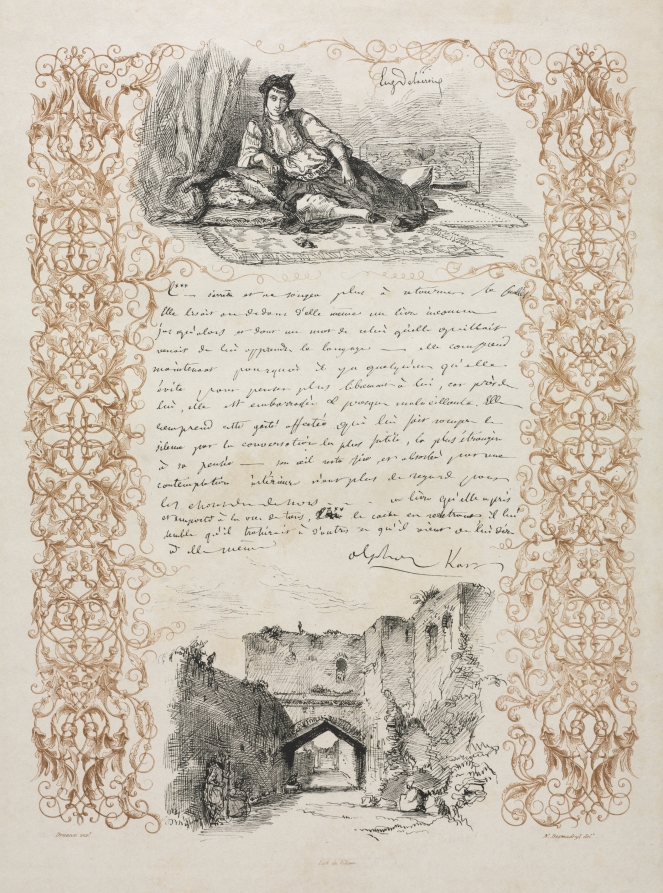 Eug Delacroix
L*** s'arrête et ne songea plus à retourner le feuillet
Elle lisait au dedans d'elle même un livre inconnu
jusqu'alors et dont un mot de celui qu'elle quittait
venait de lui apprendre le langage — elle comprend
maintenant pourquoi il y a quelqu'un qu'elle
évite pour penser plus librement à lui, car près de
lui, elle est embarrassée & presque malveillante. Elle
comprend cette gaîté affectée qui lui fait rompre le
silence par la conversation la plus futile, la plus étrangère
à sa pensée — son œil reste fixe et absorbé par une
contemplation intérieure n'ont plus de regard pour
les choses du dehors — ce livre qu'elle a pris
et emporté à la vue de tous, elle le cache en rentrant il lui
semble qu'il trahirait à d'autres ce qu'il vient de lui dire
à elle même
Alphonse Karr